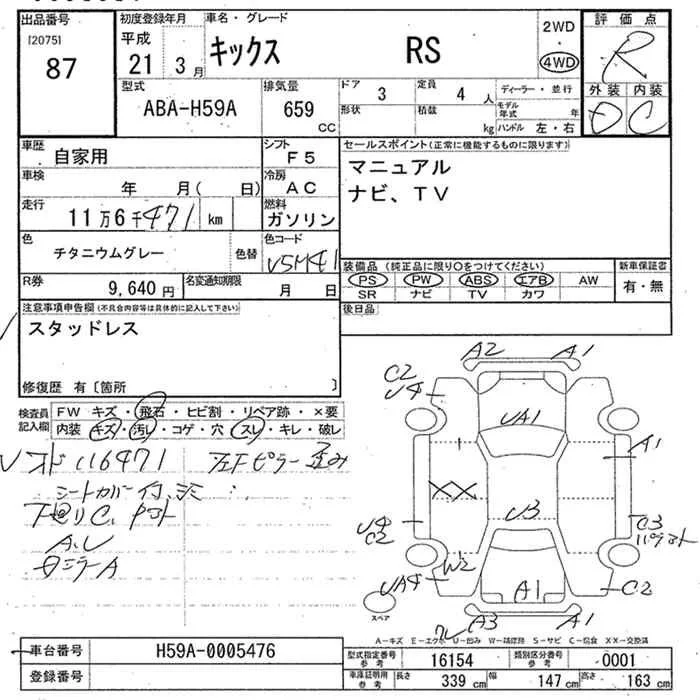 出品番号 初度登録年月 車名・グレード 評価点
[2075]
87
平成
21 3月
キックス RS
2WD
4WD
R
型式 排気量 ドア 定員 ディーラー・並行 外装 内装
ABA-H59A 659 CC 3 4人
形状 積載 kg モデル年式 年
ハンドル 左・右
D C
車歴 自家用 シフト F5
車検 年 月( 日) 冷房 AC
走行 11万6千471 km 燃料 ガソリン
色 チタニウムグレー 色替 色コード
R券 9,640円 名変通知期限 月 日
セールスポイント(正常に機能するものに限ります)
マニュアル
ナビ、TV
装備品(純正品に限り○をつけてください) 新車保証書
PS PW ABS エアB AW 有・無
SR ナビ TV カワ
後日品
注意事項申告欄(不具合内容等は具体的に記入して下さい)
スタッドレス
修復歴 有〔箇所 〕
検査員記入欄
FW キズ・飛石・ヒビ割・リペア跡・×要
内装 キズ・汚レ・コゲ・穴・スレ・キレ・破レ
116471
シートカバー付
A2 A1
C2
UA1
A1
XX
U3
C3
C2
W2
A1
C2
A3 A1
スペア
A-キズ E-エクボ U-凹み W-補修跡 S-サビ C-腐食 XX-交換済
車台番号 H59A-0005476
登録番号
型式指定番号 参考 16154 類別区分番号 参考 0001
車庫証明用 参考 長さ 339 cm 幅 147 cm 高さ 163 cm